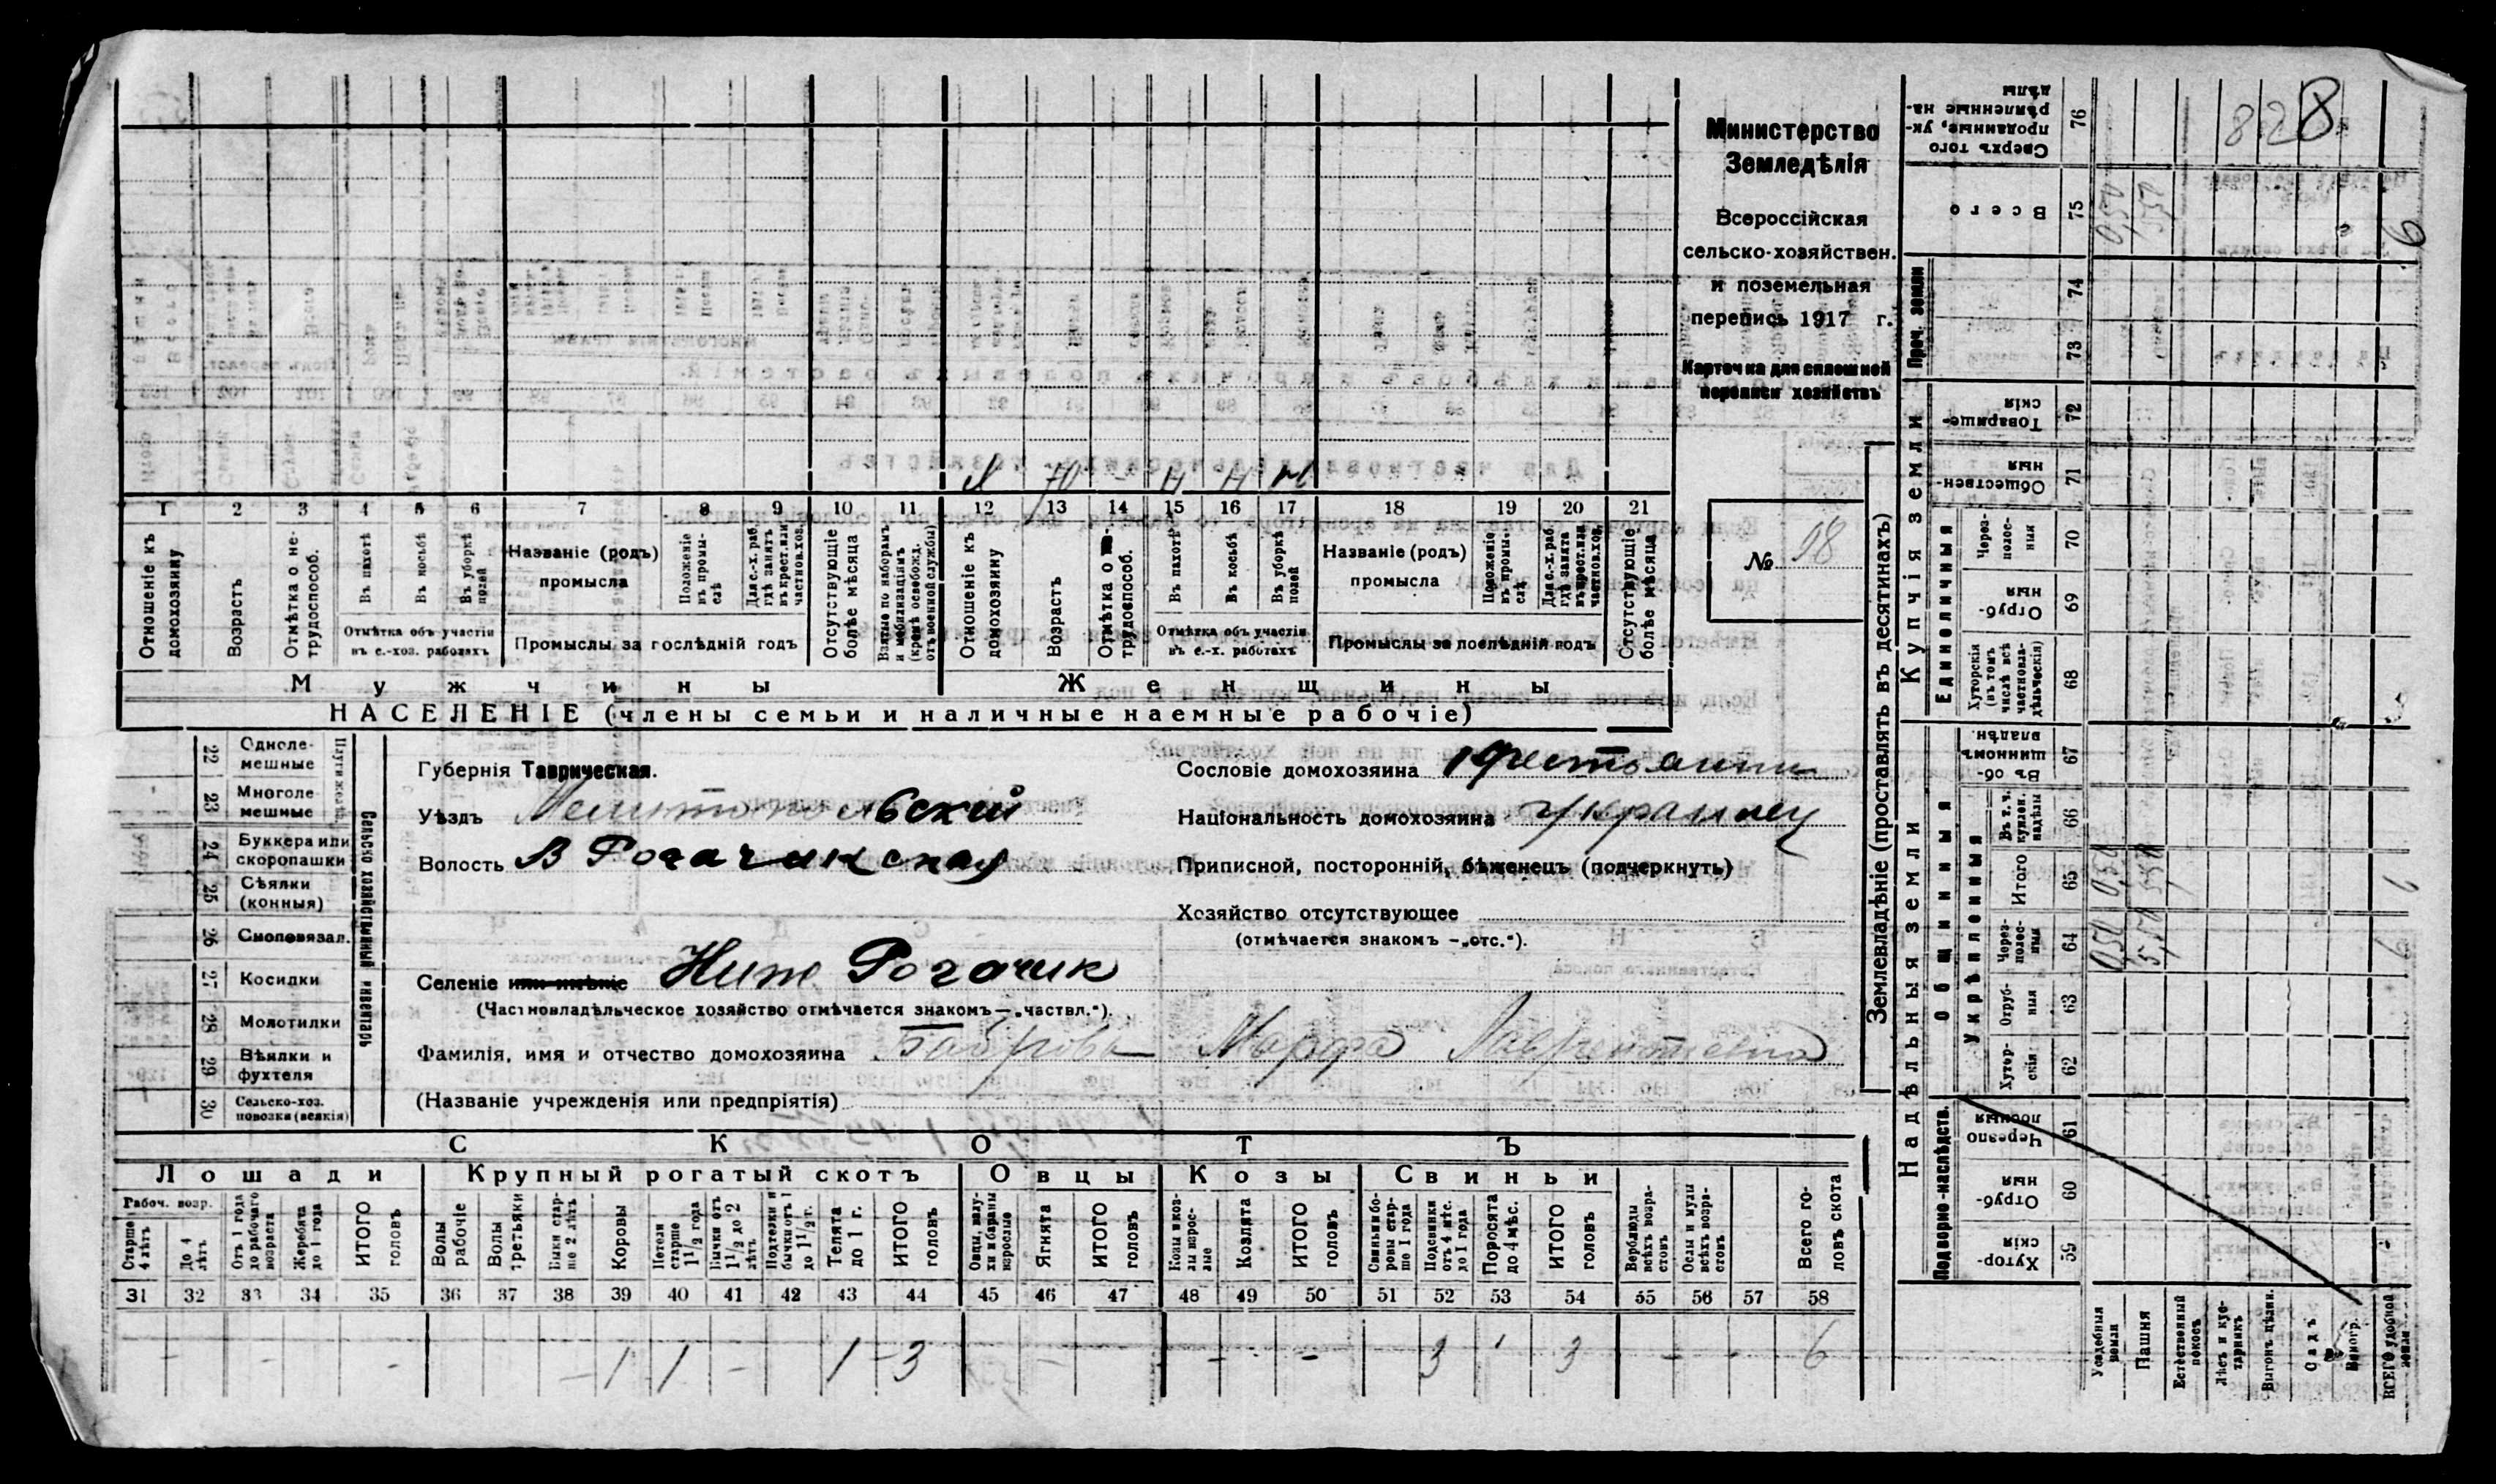 Министерство
Земледѣлія
Всероссійская
сельско-хозяйствен.
и поземельная
перепись 1917 г.
Карточка для сплошной
переписи хозяйствъ
№ 98
828
1 2 3 4 5 6 7 8 9 10 11 12 13 14 15 16 17 18 19 20 21
Отношеніе къ домохозяину
Возрастъ
Отмѣтка о нетрудоспособ.
Въ пахотѣ
Въ косьбѣ
Въ уборкѣ полей
Отмѣтка объ участіи въ с.-хоз. работахъ
Названіе (родъ) промысла
Положеніе въ промыслѣ
Для с.-х. раб. гдѣ занятъ въ крест. или частнов. хоз.
Промыслы за послѣдній годъ
Отсутствующіе болѣе мѣсяца
Взятые по наборамъ и мобилизаціямъ (кромѣ освобожд. отъ военной службы)
Отношеніе къ домохозяину
Возрастъ
70
Отмѣтка о трудоспособ.
Въ пахотѣ
Н
Въ косьбѣ
Н
Въ уборкѣ полей
Отмѣтка объ участіи въ с.-х. работахъ
Названіе (родъ) промысла
Положеніе въ промыслѣ
Для с.-х. раб. гдѣ занята въ крест. или частнов. хоз.
Промыслы за послѣдній годъ
Отсутствующіе болѣе мѣсяца
Мужчины
Женщины
НАСЕЛЕНІЕ (члены семьи и наличные наемные рабочіе)
22 Однолемешные
23 Многолемешные
24 Буккера или скоропашки
25 Сѣялки (конныя)
26 Сноповязал.
27 Косилки
28 Молотилки
29 Вѣялки и фухтеля
30 Сельско-хоз. повозки (всякія)
Сельско хозяйственный инвентарь
Губернія Таврическая.
Уѣздъ Мелитопольский
Волость В Рогачикская
Селеніе или имѣніе Ниж Рогачик
(Частновладѣльческое хозяйство отмѣчается знакомъ—„частвл.“).
Фамилія, имя и отчество домохозяина Боброва Марфа Лаврентьевна
(Названіе учрежденія или предпріятія)
Сословіе домохозяина
Національность домохозяина украинец
Приписной, посторонній, бѣженецъ (подчеркнуть)
Хозяйство отсутствующее
(отмѣчается знакомъ —„отс.“).
СКОТЪ
Лошади
Крупный рогатый скотъ
Овцы
Козы
Свиньи
Рабоч. возр.
Старше 4 лѣтъ
До 4 лѣтъ
Отъ 1 года до рабочаго возраста
Жеребята до 1 года
ИТОГО головъ
Волы рабочіе
Волы третьяки
Быки старше 2 лѣтъ
Коровы
Нетели старше 1 1/2 года
Бычки отъ 1 1/2 до 2 лѣтъ
Подтелки и бычки отъ 1 до 1 1/2 г.
Телята до 1 г.
ИТОГО головъ
Овцы, валухи и бараны взрослые
Ягнята
ИТОГО головъ
Козы и козлы взрослые
Козлята
ИТОГО головъ
Свиньи боровы старше 1 года
Подсвинки отъ 4 мѣс. до 1 года
Поросята до 4 мѣс.
ИТОГО головъ
Верблюды всѣхъ возрастовъ
Ослы и мулы всѣхъ возрастовъ
Всего головъ скота
31 32 33 34 35 36 37 38 39 40 41 42 43 44 45 46 47 48 49 50 51 52 53 54 55 56 57 58
- - - - 1 1 - 1 - 3 - - - 3 3 - - 6
Землевладѣніе (проставлять въ десятинахъ)
Надѣльныя земли
Купчія земли
Подворно-наслѣдств.
Общинныя
Укрѣпленныя
Единоличныя
Проч. земли
Хуторскія 59
Отрубныя 60
Черезполосныя 61
Хуторскія 62
Отрубныя 63
Черезполосныя 64
Итого 65
Въ т. ч. куплен. надѣлы 66
Въ общинномъ владѣн. 67
Хуторскія (въ томъ числѣ всѣ частновладѣльческія) 68
Отрубныя 69
Черезполосныя 70
Общественныя 71
Товарищескія 72
73
74
Всего 75
Сверхъ того проданные, укрѣпленные надѣлы 76
Усадебныя земли
0,50 0,50 0,50
Пашня
5,50 5,50 5,50
Естественный покосъ
Лѣсъ и кустарникъ
Выгонъ, цѣлин.
Садъ
Виногр.
ВСЕГО удобной земли
6 6 6